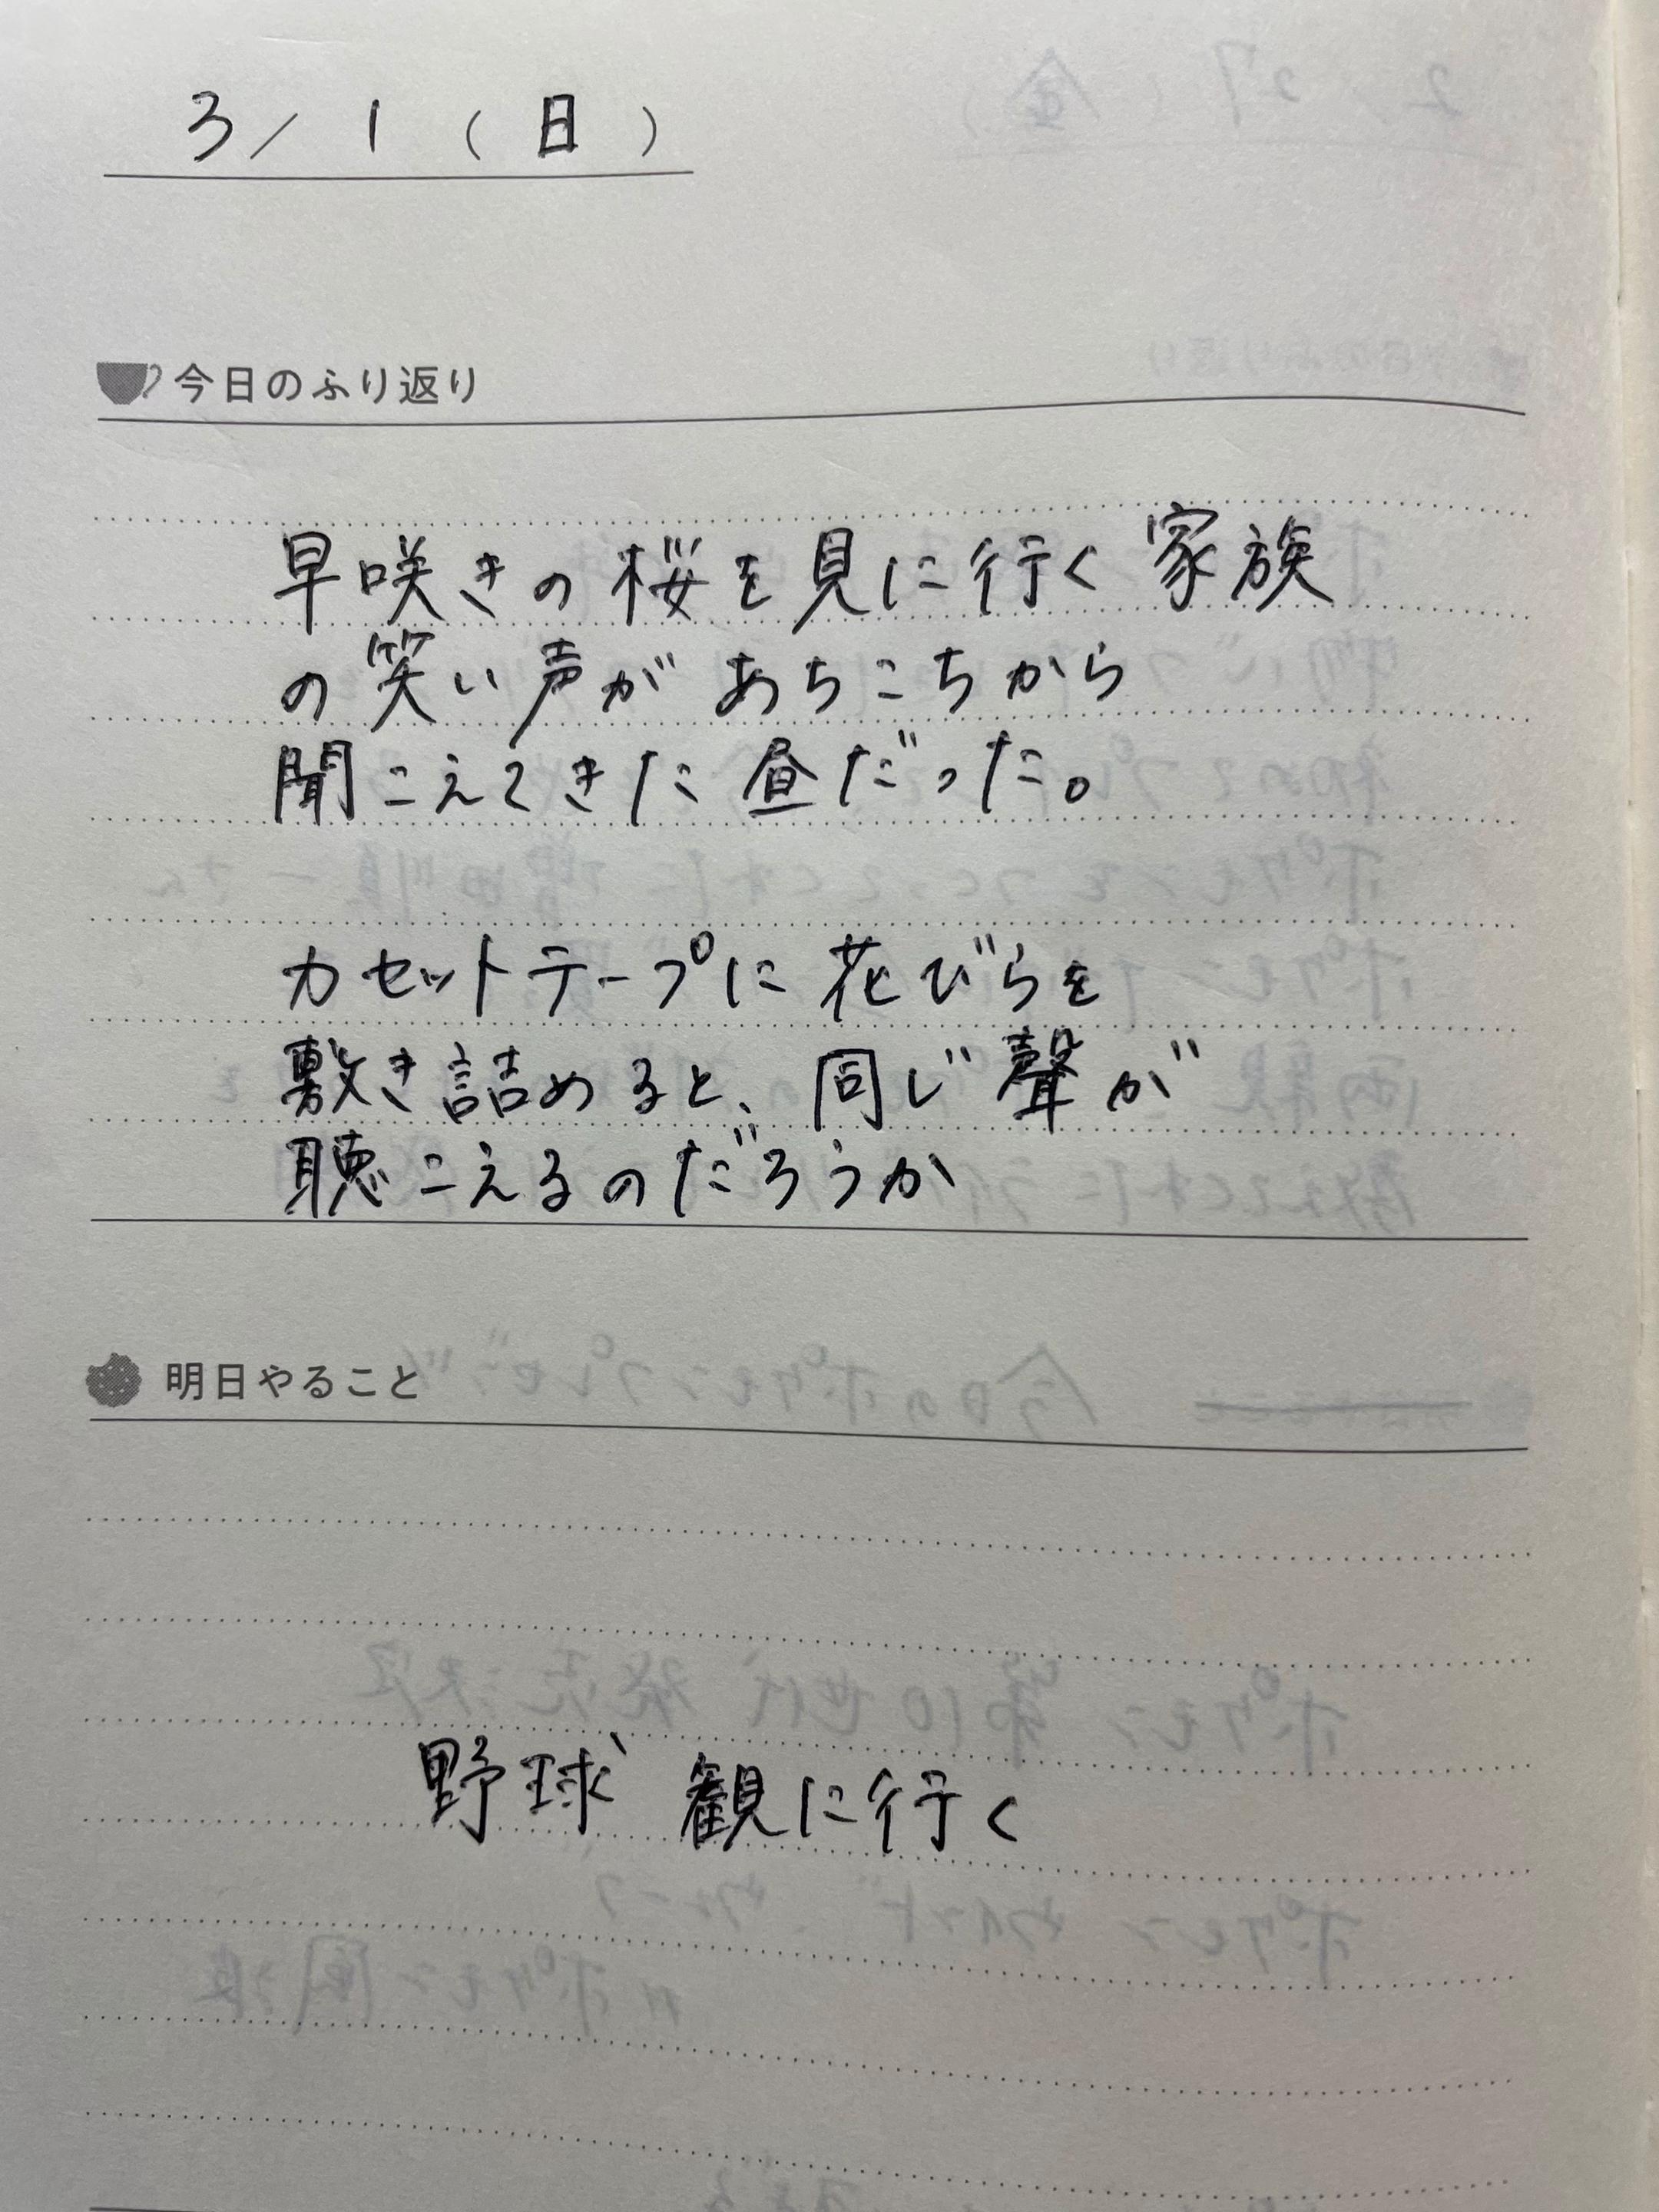 3/1(日)
今日のふり返り
早咲きの桜を見に行く家族
の笑い声があちこちから
聞こえてきた昼だった。
カセットテープに花びらを
敷き詰めると、同じ聲が
聴こえるのだろうか
明日やること
野球観に行く